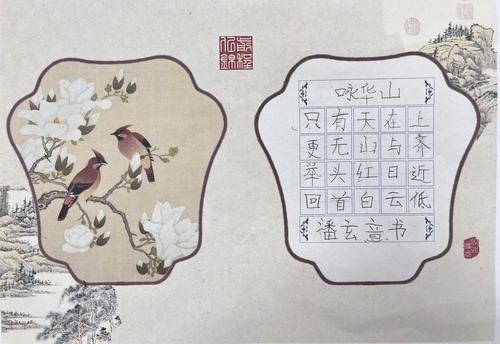 前程似锦
咏华山
只有天在上
更无山与齐
举头红日近
回首白云低
潘玄意书